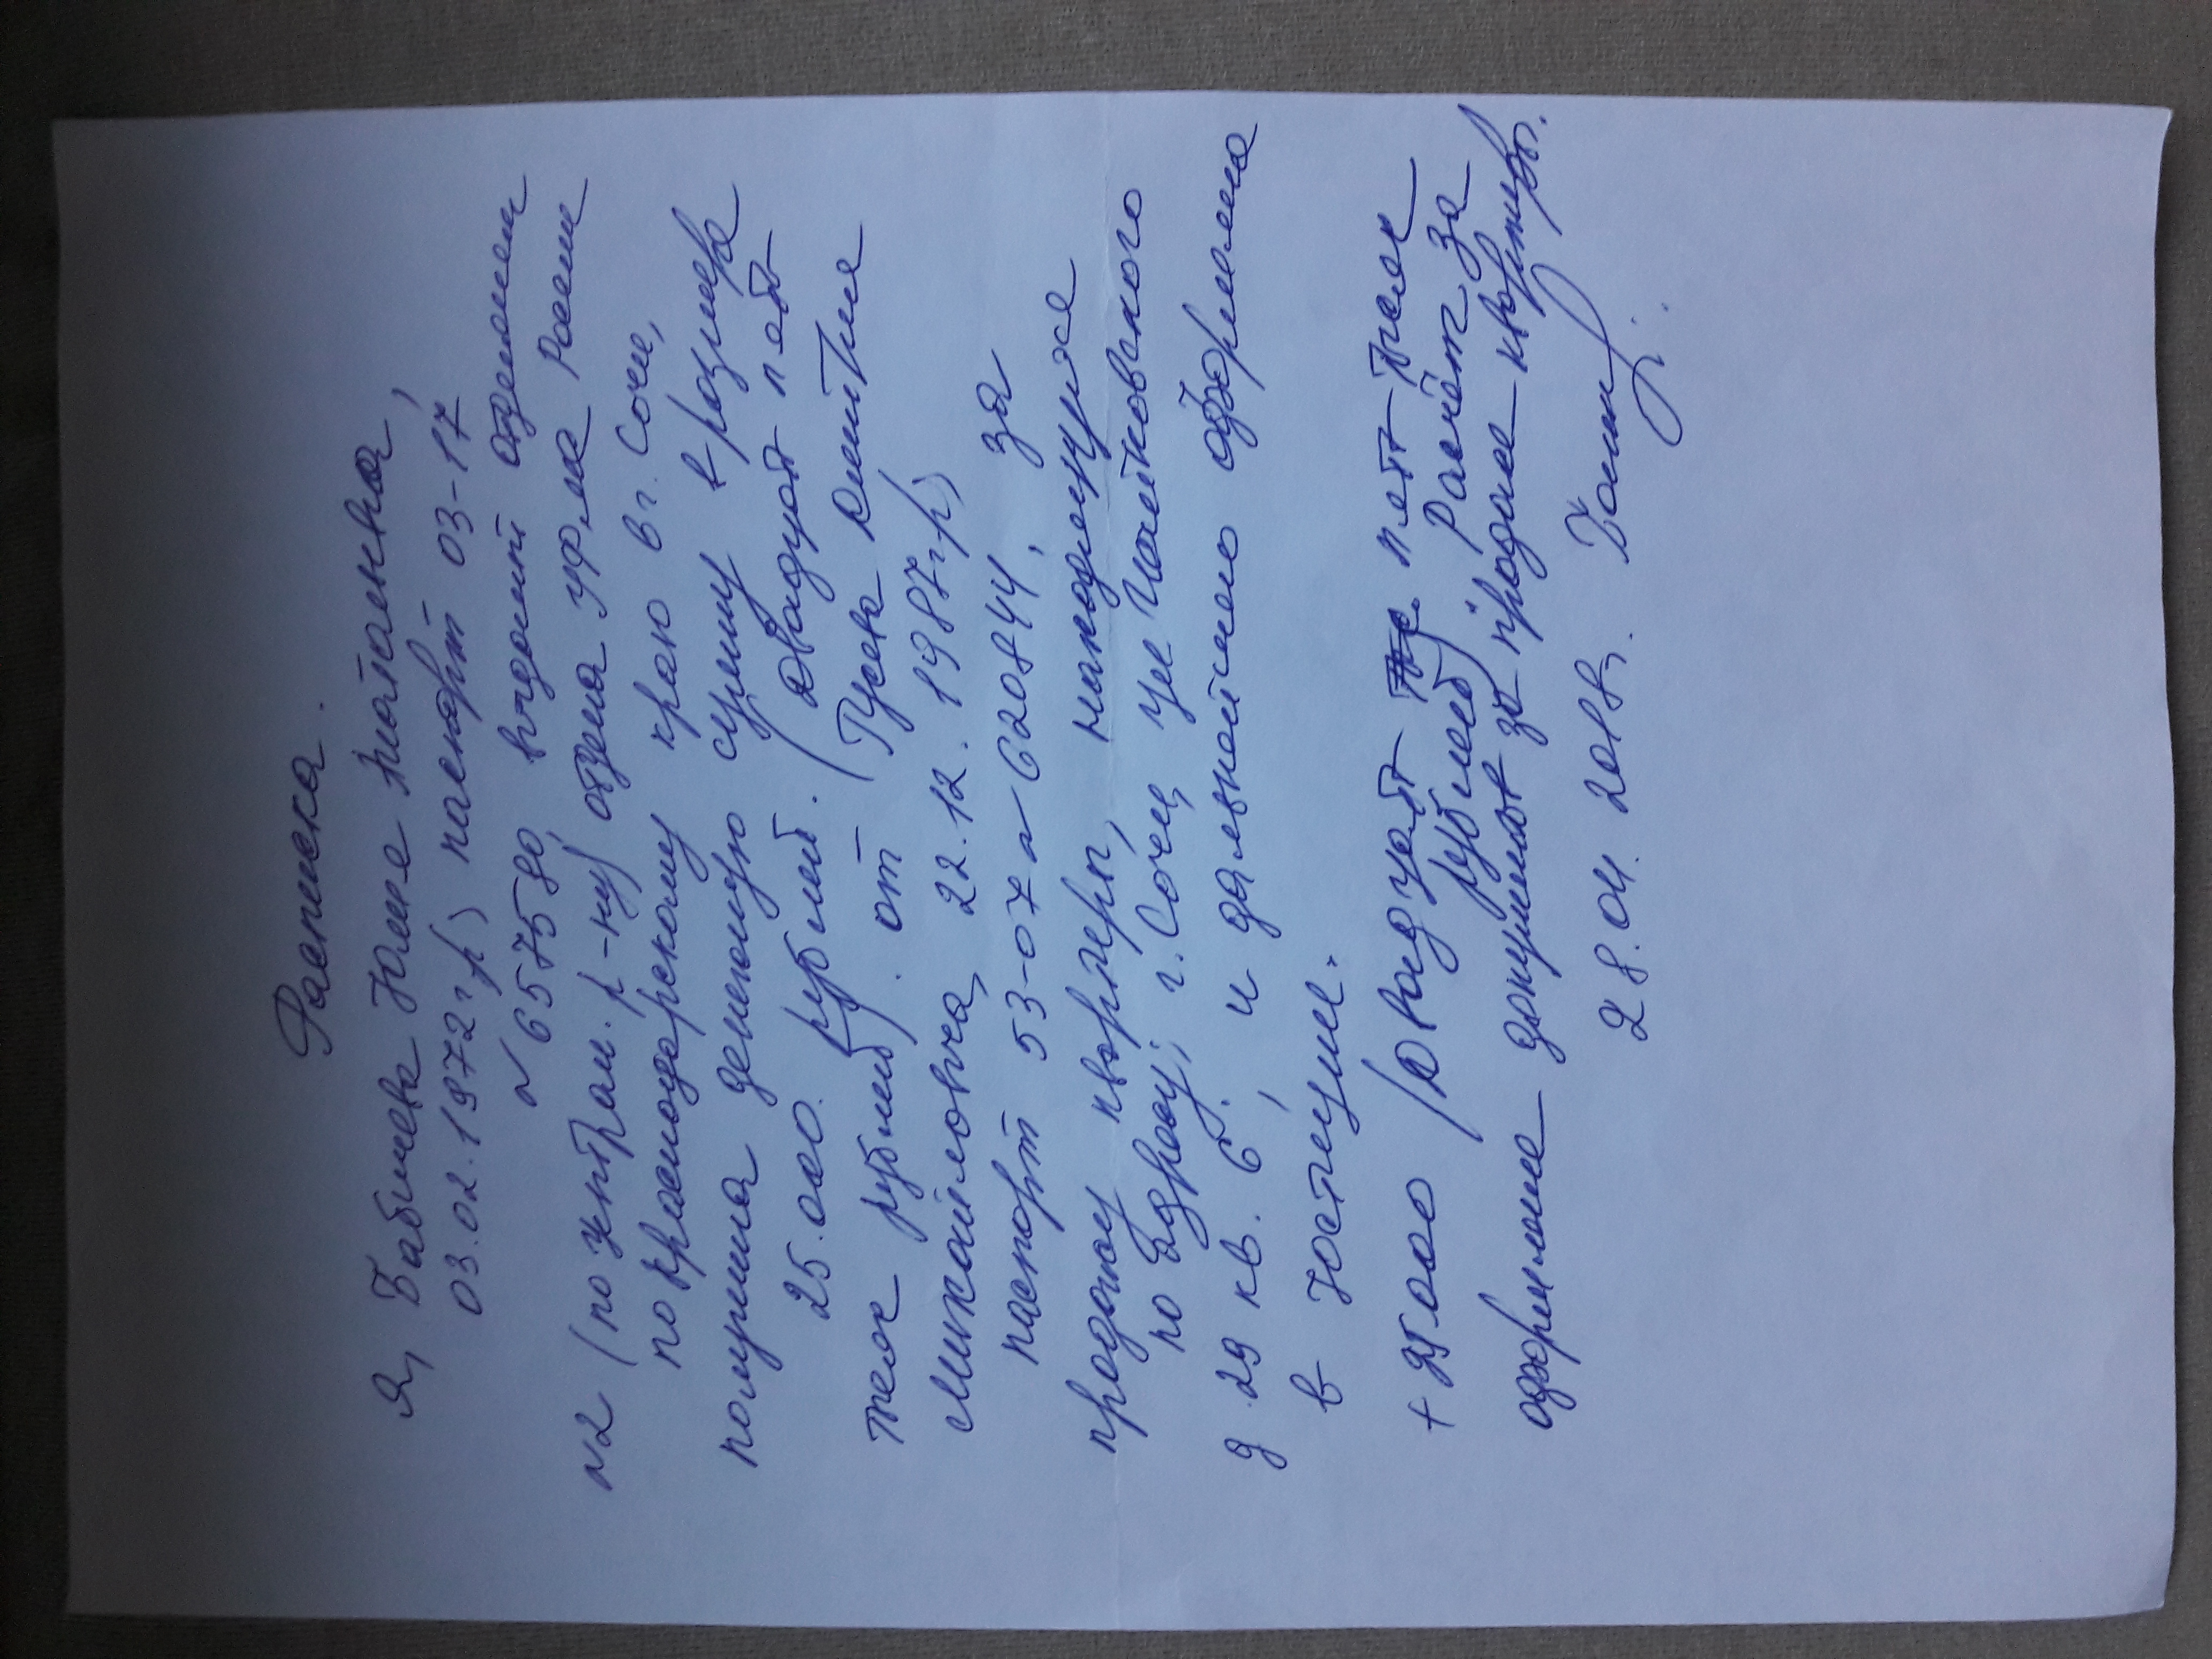 Расписка.
Я, Бабичева Юлия Анатольевна,
03.02.1972 г.р) паспорт 03-17
N 657580, выдан отделением
N2 (по централ. р-ну) отдела УФМС России
по Краснодарскому краю в г. Сочи,
получила денежную сумму в размере
25.000. рублей. (двадцать пять
тысяч рублей). от (Гусева Дмитрия
Михайловича, 22.12.1987 г.р)
паспорт 53-07 N 620844, за
продажу квартиры, находящуюся
по адресу; г. Сочи, ул Чайковского
д 29 кв. 6, и дальнейшего оформления
в юстиции.
+ 25000 (двадцать пять тысяч
рублей) Расчёт за
оформление документов за продажу квартиры.
28.04.2018г.